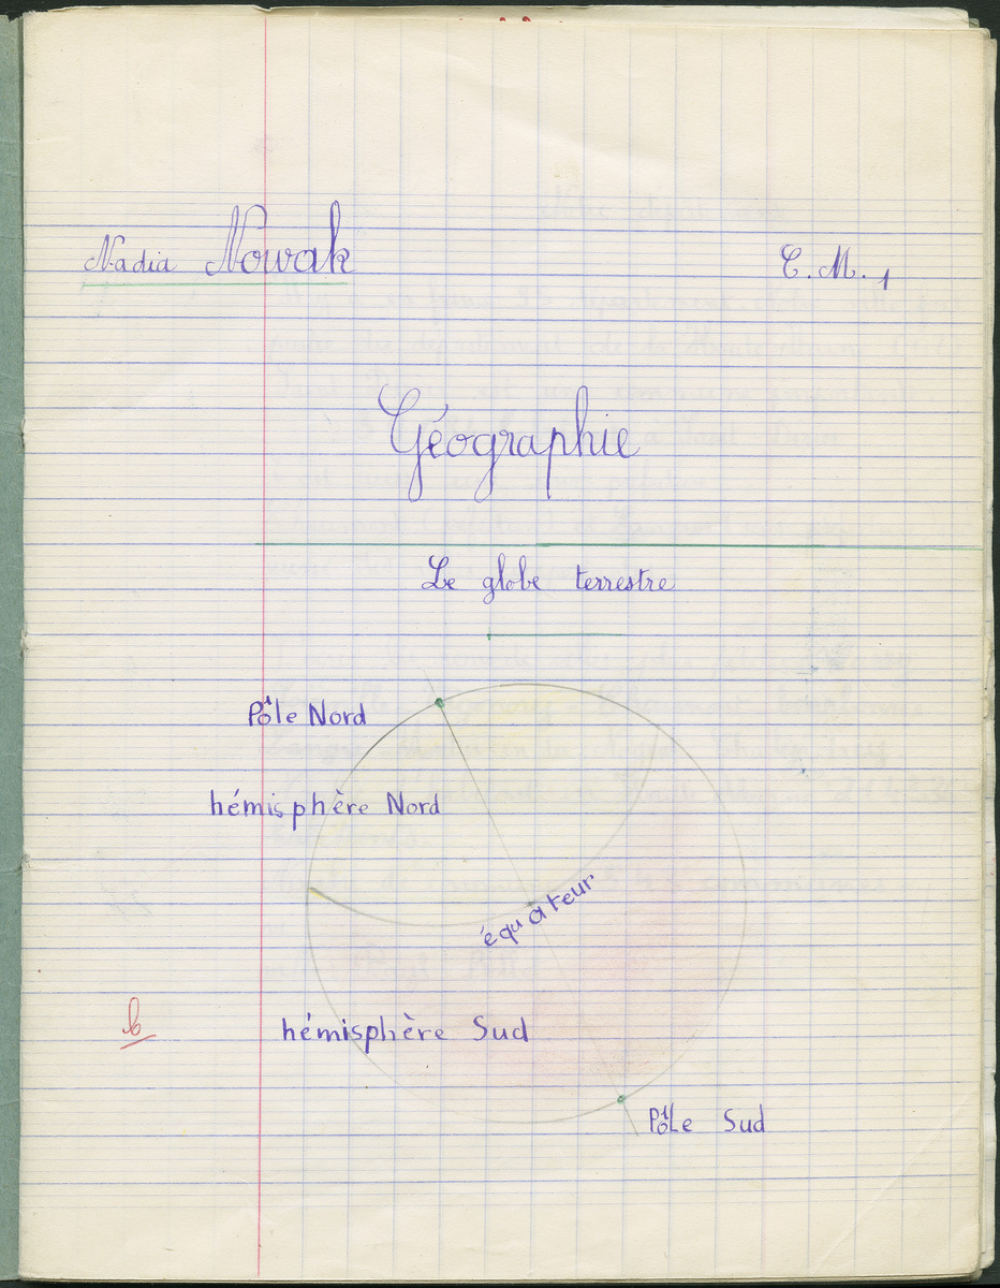 Nadia Nowak
C.M.1
Géographie
Le globe terrestre
Pôle Nord
hémisphère Nord
équateur
hémisphère Sud
Pôle Sud